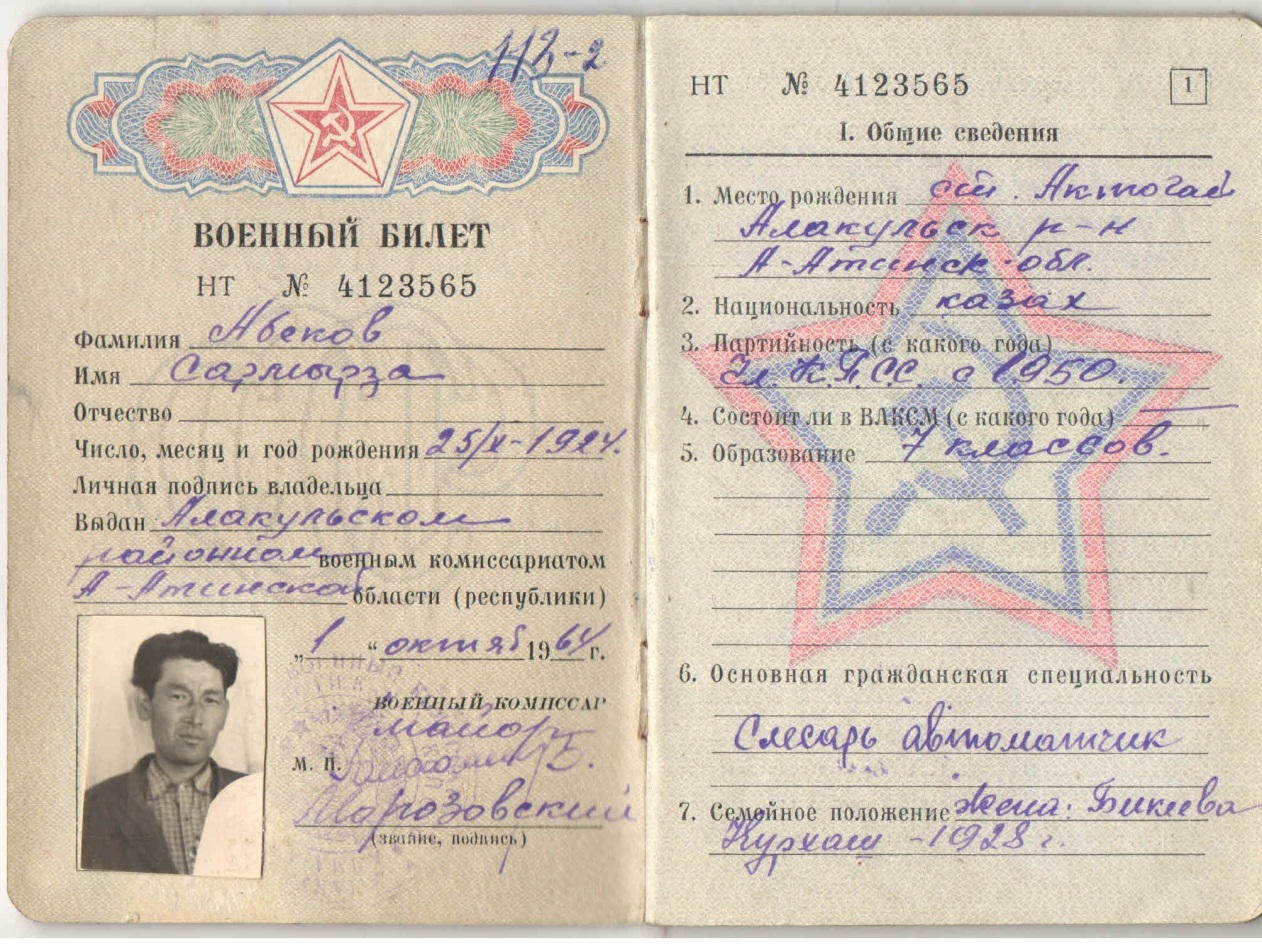 112-2
ВОЕННЫЙ БИЛЕТ
НТ № 4123565
Фамилия Абеков
Имя Сармырза
Отчество
Число, месяц и год рождения 25/X-1924.
Личная подпись владельца
Выдан Алакульском
районном военным комиссариатом
А-Атинской области (республики)
„1 “ октяб 1964 г.
ВОЕННЫЙ КОМИССАР
майор
М. П.
(звание, подпись)
НТ № 4123565
1
I. Общие сведения
1. Место рождения ст. Актогай
Алакульск р-н
А-Атинск. обл.
2. Национальность казах
3. Партийность (с какого года)
Чл. К.П.С.С. с 1950.
4. Состоит ли в ВЛКСМ (с какого года) —
5. Образование 7 классов.
6. Основная гражданская специальность
Слесарь автоматчик
7. Семейное положение Жена: Бикеева
Нурхаш -1928 г.